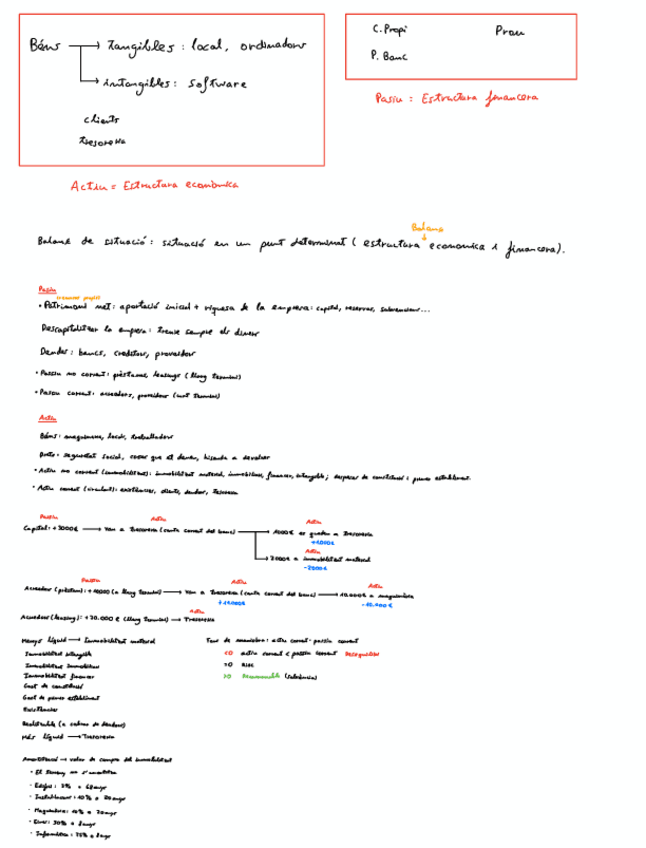 Béns → tangibles: local, ordinadors
→ intangibles: software
clients
tresoreria
Actiu = Estructura econòmica
C. Propi Préu
P. Banc
Pasiu = Estructura financera
Balanç
Balanç de situació: situació en un punt determinat (estructura economica i financera).
Pasiu
recursos propis
• Patrimoni net: aportació inicial + riquesa de la empresa: capital, reserves, subvencions...
Descapitalitzar la empresa: treure sempre els diners
Deudes: bancs, creditors, proveidors
• Passiu no corrent: préstams, leasings (llarg termini)
• Pasiu corrent: creedors, proveidors (curt termini)
Actiu
Béns: maquinaria, local, treballadors
Drets: seguretat social, coses que et deuen, hisenda a devolver
• Actiu no corrent (immobilitzat): immobilitzat material, immobiliari, financer, intangible; despeses de constitució i primer establiment.
• Actiu corrent (circulant): existències, clients, deudors, tresoreria
Pasiu Actiu Actiu
Capital: +3000€ → van a Tresoreria (conta corrent del banc) → 1000€ es queden a Tresoreria
+1000€
Actiu
→ 2000€ a immobilitzat material
-2000€
Pasiu Actiu Actiu
Acreedor (préstem): +10000 (a llarg termini) → van a Tresoreria (conta corrent del banc) → 10.000€ a maquinària
+10000€ -10.000€
Actiu
Acreedor (leasing): +20.000€ (llarg termini) → Tresoreria
Menys líquid → Immobilitzat material
Immobilitzat intangible
Immobilitzat immobiliari
Immobilitzat financer
Gast de constitució
Gast de primer establiment
Existències
Realitzable (a cobrar de deudors)
Més líquid → Tresoreria
Fons de maniobra: actiu corrent - passiu corrent
<0 actiu corrent < passiu corrent Desequilibri
=0 Risc
>0 Recomanable (solvència)
Amortització → valor de compra del immobilitzat
• El terreny no s'amortitza
• Edificis: 3% o 68 anys
• Instal·lacions: 10% o 20 anys
• Maquinària:
• Eines: 30% o 8 anys
• Informàtica: 25% o 8 anys